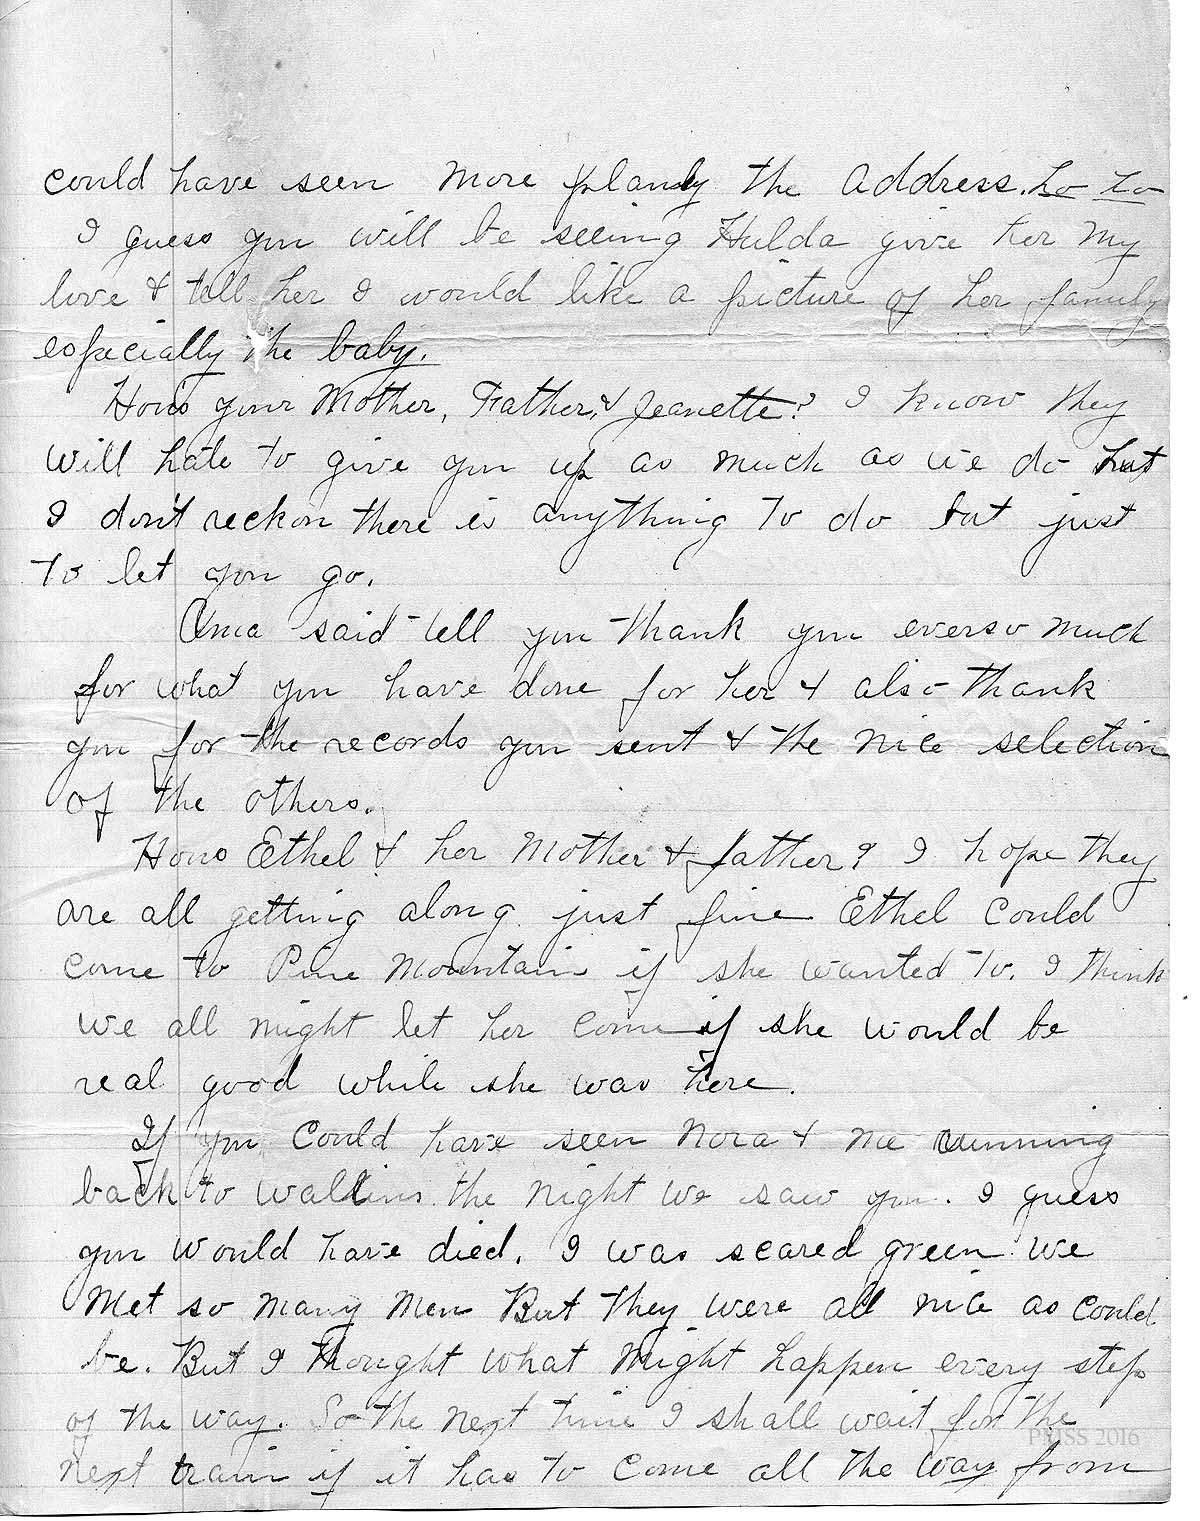 could have seen more planly the address. ho ho
I guess you will be seeing Hulda give her my
love & tell her I would like a picture of her family
especially the baby.
Hows your Mother, Father, & Jeanette? I know they
will hate to give you up as much as we do but
I don't reckon there is anything to do but just
to let you go.
Oma said tell you thank you everso much
for what you have done for her & also thank
you for the records you sent & the nice selection
of the others.
Hows Ethel & her Mother & father? I hope they
are all getting along just fine Ethel could
come to Pine Mountain if she wanted to. I think
we all might let her come if she would be
real good while she was here.
If you could have seen Nora & me running
back to Wallins the night we saw you. I guess
you would have died. I was scared green. We
Met so many men But they were all nice as could
be. But I thought what might happen every step
of the way. So the next time I shall wait for the
next train if it has to come all the way from
PMSS 2016